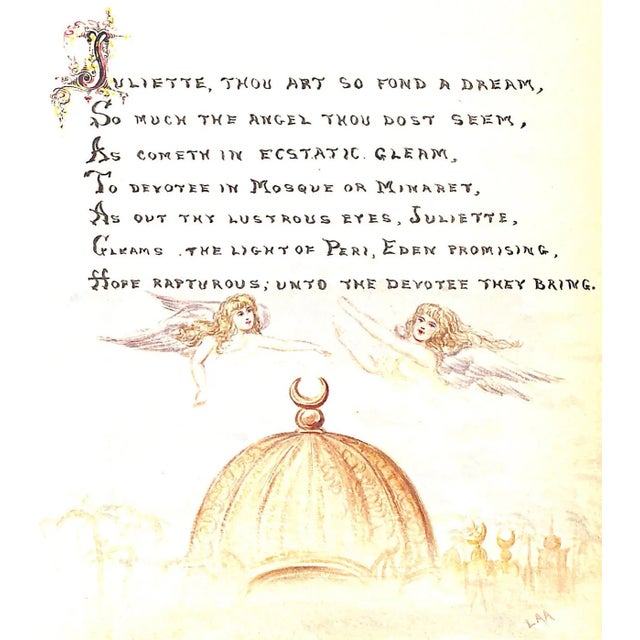 Juliette, thou art so fond a dream,
So much the angel thou dost seem,
As cometh in ecstatic gleam,
To devotee in Mosque or Minaret,
As out thy lustrous eyes, Juliette,
Gleams the light of Peri, Eden promising,
Hope rapturous, unto the devotee they bring.
LAA